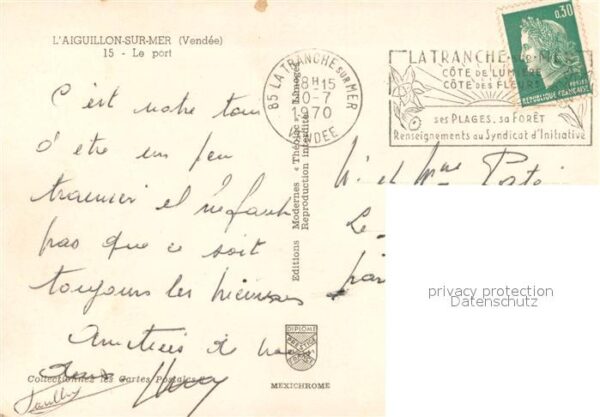 L'AIGUILLON-SUR-MER (Vendée)
15 - Le port
C'est notre tour
d'etre un peu
et n'faut
pas que ce soit
toujours les
Amitiés de
deux
Collectionnez les Cartes Postales
Editions Modernes « Théojac », Limoges
Reproduction interdite
DIPLOME
PRESTIGE
FRANCE
MEXICHROME
85 LA TRANCHE SUR MER
18H15
0-7
1970
VENDEE
LA TRANCHE-SUR-MER
CÔTE DE LUMIÈRE
CÔTE DES FLEURS
ses PLAGES, sa FORÊT
Renseignements au Syndicat d'Initiative
0,30
POSTES
REPUBLIQUE FRANÇAISE
M. et Mme
Le
privacy protection
Datenschutz